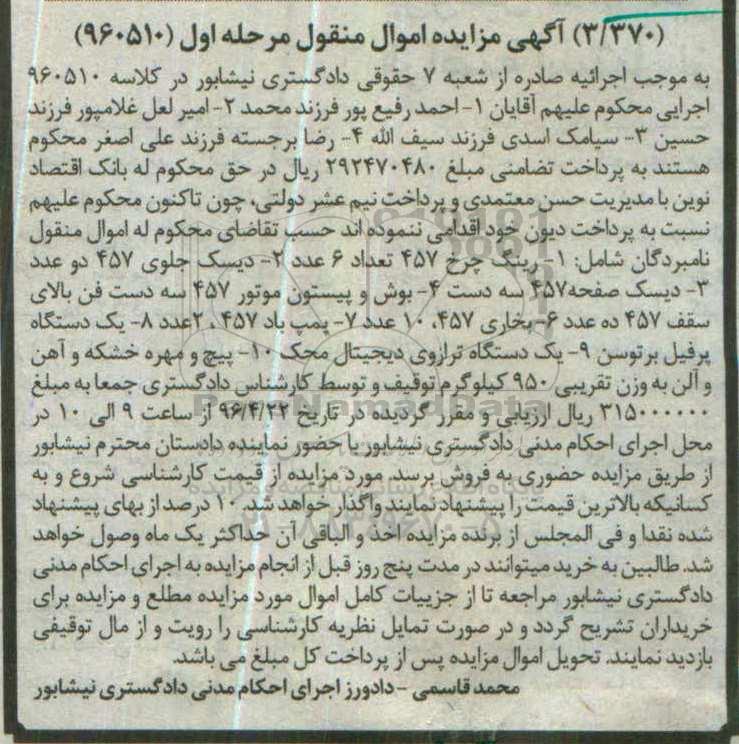 (۳/۳۷۰) آگهی مزایده اموال منقول مرحله اول (۹۶۰۵۱۰)
به موجب اجرائیه صادره از شعبه ۷ حقوقی دادگستری نیشابور در کلاسه ۹۶۰۵۱۰
اجرایی محکوم علیهم آقایان ۱- احمد رفیع پور فرزند محمد ۲- امیر لعل غلامپور فرزند
حسین ۳- سیامک اسدی فرزند سیف الله ۴- رضا برجسته فرزند علی اصغر محکوم
هستند به پرداخت تضامنی مبلغ ۲۹۲۴۷۰۴۸۰ ریال در حق محکوم له بانک اقتصاد
نوین با مدیریت حسن معتمدی و پرداخت نیم عشر دولتی، چون تاکنون محکوم علیهم
نسبت به پرداخت دیون خود اقدامی ننموده اند حسب تقاضای محکوم له اموال منقول
نامبردگان شامل: ۱- رینگ چرخ ۴۵۷ تعداد ۶ عدد ۲- دیسک جلوی ۴۵۷ دو عدد
۳- دیسک صفحه ۴۵۷ سه دست ۴- بوش و پیستون موتور ۴۵۷ سه دست فن بالای
سقف ۴۵۷ ده عدد ۶- بخاری ۴۵۷، ۱۰ عدد ۷- پمپ باد ۴۵۷، ۲عدد ۸- یک دستگاه
پرفیل برتوسن ۹- یک دستگاه ترازوی دیجیتال محک ۱۰- پیچ و مهره خشکه و آهن
و آلن به وزن تقریبی ۹۵۰ کیلوگرم توقیف و توسط کارشناس دادگستری جمعا به مبلغ
۳۱۵۰۰۰۰۰۰ ریال ارزیابی و مقرر گردیده در تاریخ ۹۶/۴/۲۲ از ساعت ۹ الی ۱۰ در
محل اجرای احکام مدنی دادگستری نیشابور با حضور نماینده دادستان محترم نیشابور
از طریق مزایده حضوری به فروش برسد. مورد مزایده از قیمت کارشناسی شروع و به
کسانیکه بالاترین قیمت را پیشنهاد نمایند واگذار خواهد شد. ۱۰ درصد از بهای پیشنهاد
شده نقدا و فی المجلس از برنده مزایده اخذ و الباقی آن حداکثر یک ماه وصول خواهد
شد. طالبین به خرید میتوانند در مدت پنج روز قبل از انجام مزایده به اجرای احکام مدنی
دادگستری نیشابور مراجعه تا از جزییات کامل اموال مورد مزایده مطلع و مزایده برای
خریداران تشریح گردد و در صورت تمایل نظریه کارشناسی را رویت و از مال توقیفی
بازدید نمایند. تحویل اموال مزایده پس از پرداخت کل مبلغ می باشد.
محمد قاسمی - دادورز اجرای احکام مدنی دادگستری نیشابور